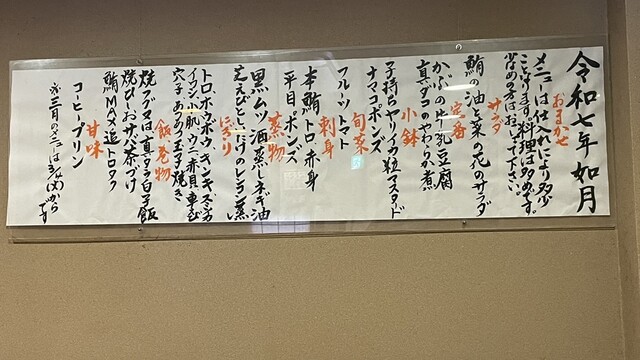 令和七年如月
おまかせ
メニューは仕入れにより多少
ことなります。料理は多めです。
少なめの方はおっしゃって下さい。
サラダ
鮪の油と菜の花のサラダ
定番
かぶの牛乳豆腐
真ダコのやわらか煮
小鉢
子持ちヤリイカ粒マスタード
ナマコポンズ
旬菜
フルーツトマト
刺身
本鮪トロ、赤身
平目ポンズ
蒸物
黒ムツ酒蒸しネギ油
芝えびとしいたけの
にぎり
トロ、ホウボウ、キンキ、スミイカ
イワシ、小肌、ウニ、赤貝、車えび
穴子、あつあつ玉子焼き
飯、巻物
焼フグ又は真ダラ白子飯
焼ひしおサバ茶づけ
鮪MAX追トロタク
甘味
コーヒープリン
※三月のメニューは3/4(火)から
です